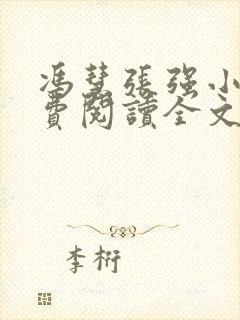 馮慧張强小
費閱讀全文
李桁